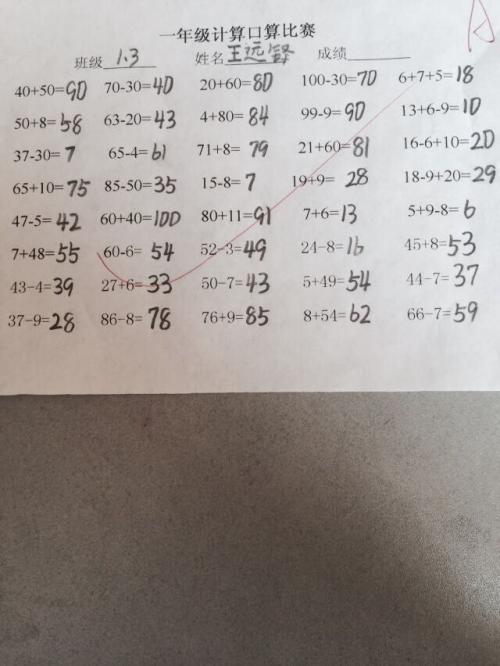 一年级计算口算比赛
班级 1.3 姓名 王远铎 成绩
40+50=90 70-30=40 20+60=80 100-30=70 6+7+5=18
50+8=58 63-20=43 4+80=84 99-9=90 13+6-9=10
37-30=7 65-4=61 71+8=79 21+60=81 16-6+10=20
65+10=75 85-50=35 15-8=7 19+9=28 18-9+20=29
47-5=42 60+40=100 80+11=91 7+6=13 5+9-8=6
7+48=55 60-6=54 52-3=49 24-8=16 45+8=53
43-4=39 27+6=33 50-7=43 5+49=54 44-7=37
37-9=28 86-8=78 76+9=85 8+54=62 66-7=59